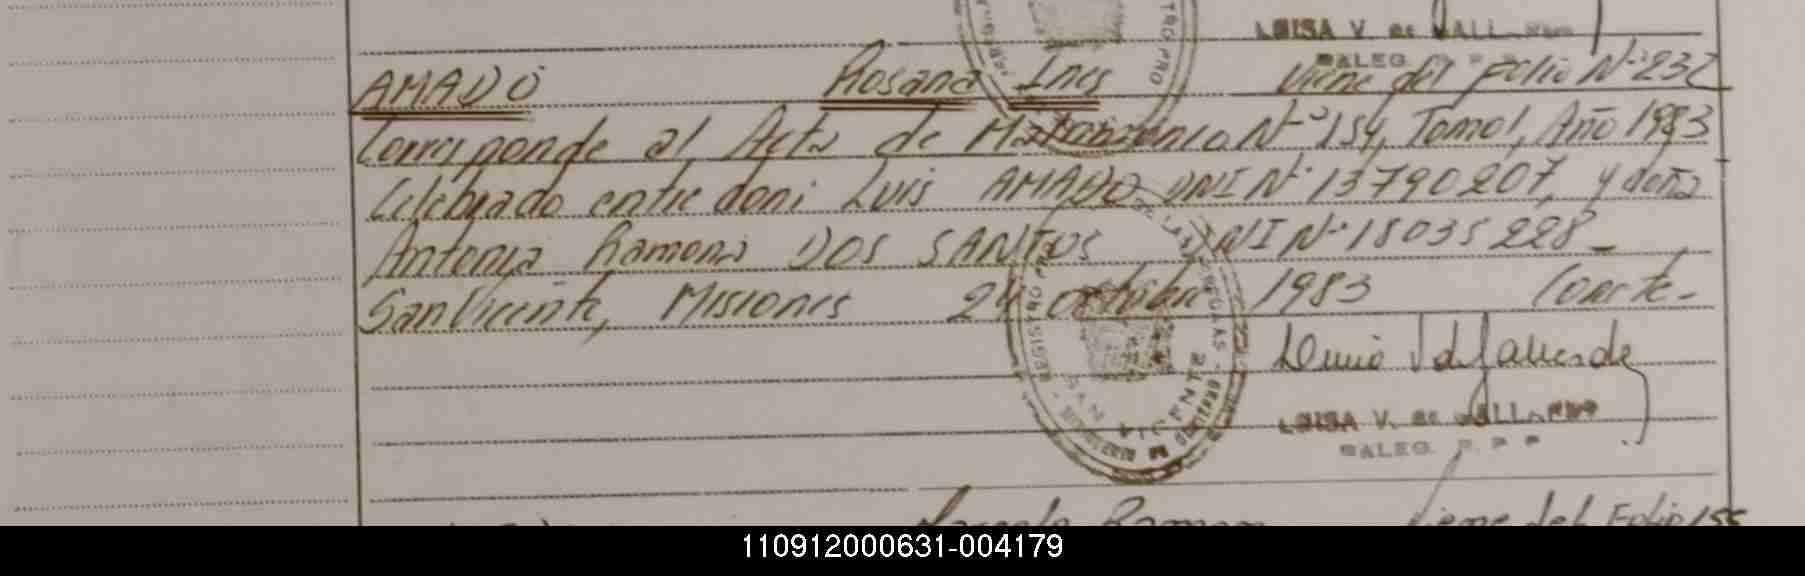 LUISA V. de GALLARDO
DALEG. R. P. P.
AMADO Rosana Ines Viene del Folio N° 232
Corresponde al Acta de Matrimonio N° 154, Tomo 1, Año 1983
Celebrado entre don: Luis AMADO DNI N° 13790207, y doña
Antonia Ramona DOS SANTOS DNI N° 18035228_
San Vicente, Misiones 24 octubre 1983 Conste-
REGISTRO PRO
DE LAS PERSONAS
SAN VICENTE
LUISA V. de GALLARDO
DALEG. R. P. P.
Ramon Viene del Folio 155
110912000631-004179